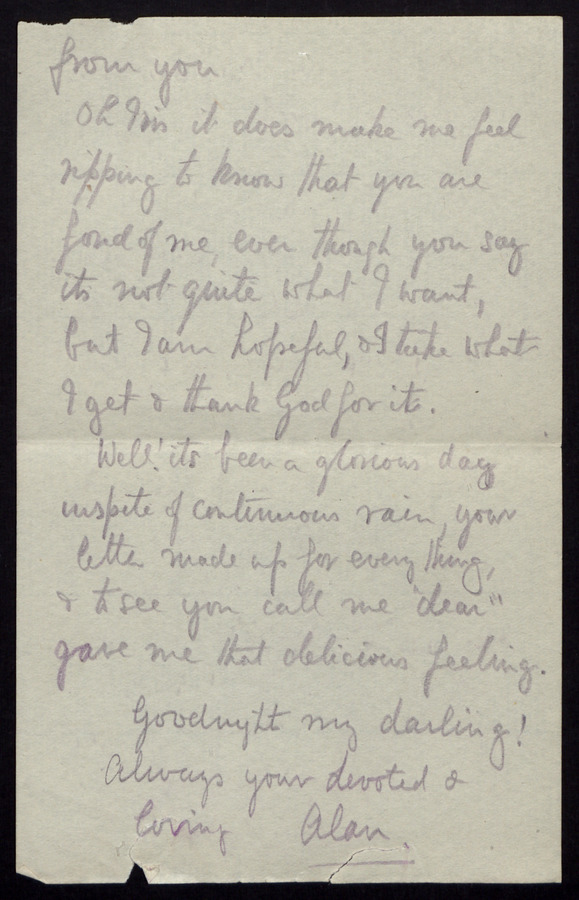 from you
Oh Mis it does make me feel
ripping to know that you are
fond of me, even though you say
its not quite what I want,
but I am hopeful, & I take what
I get & thank God for it.
Well! its been a glorious day
inspite of continuous rain, your
letter made up for every thing,
& to see you call me "dear"
gave me that delicious feeling.
Goodnight my darling!
Always your devoted &
loving Alan.